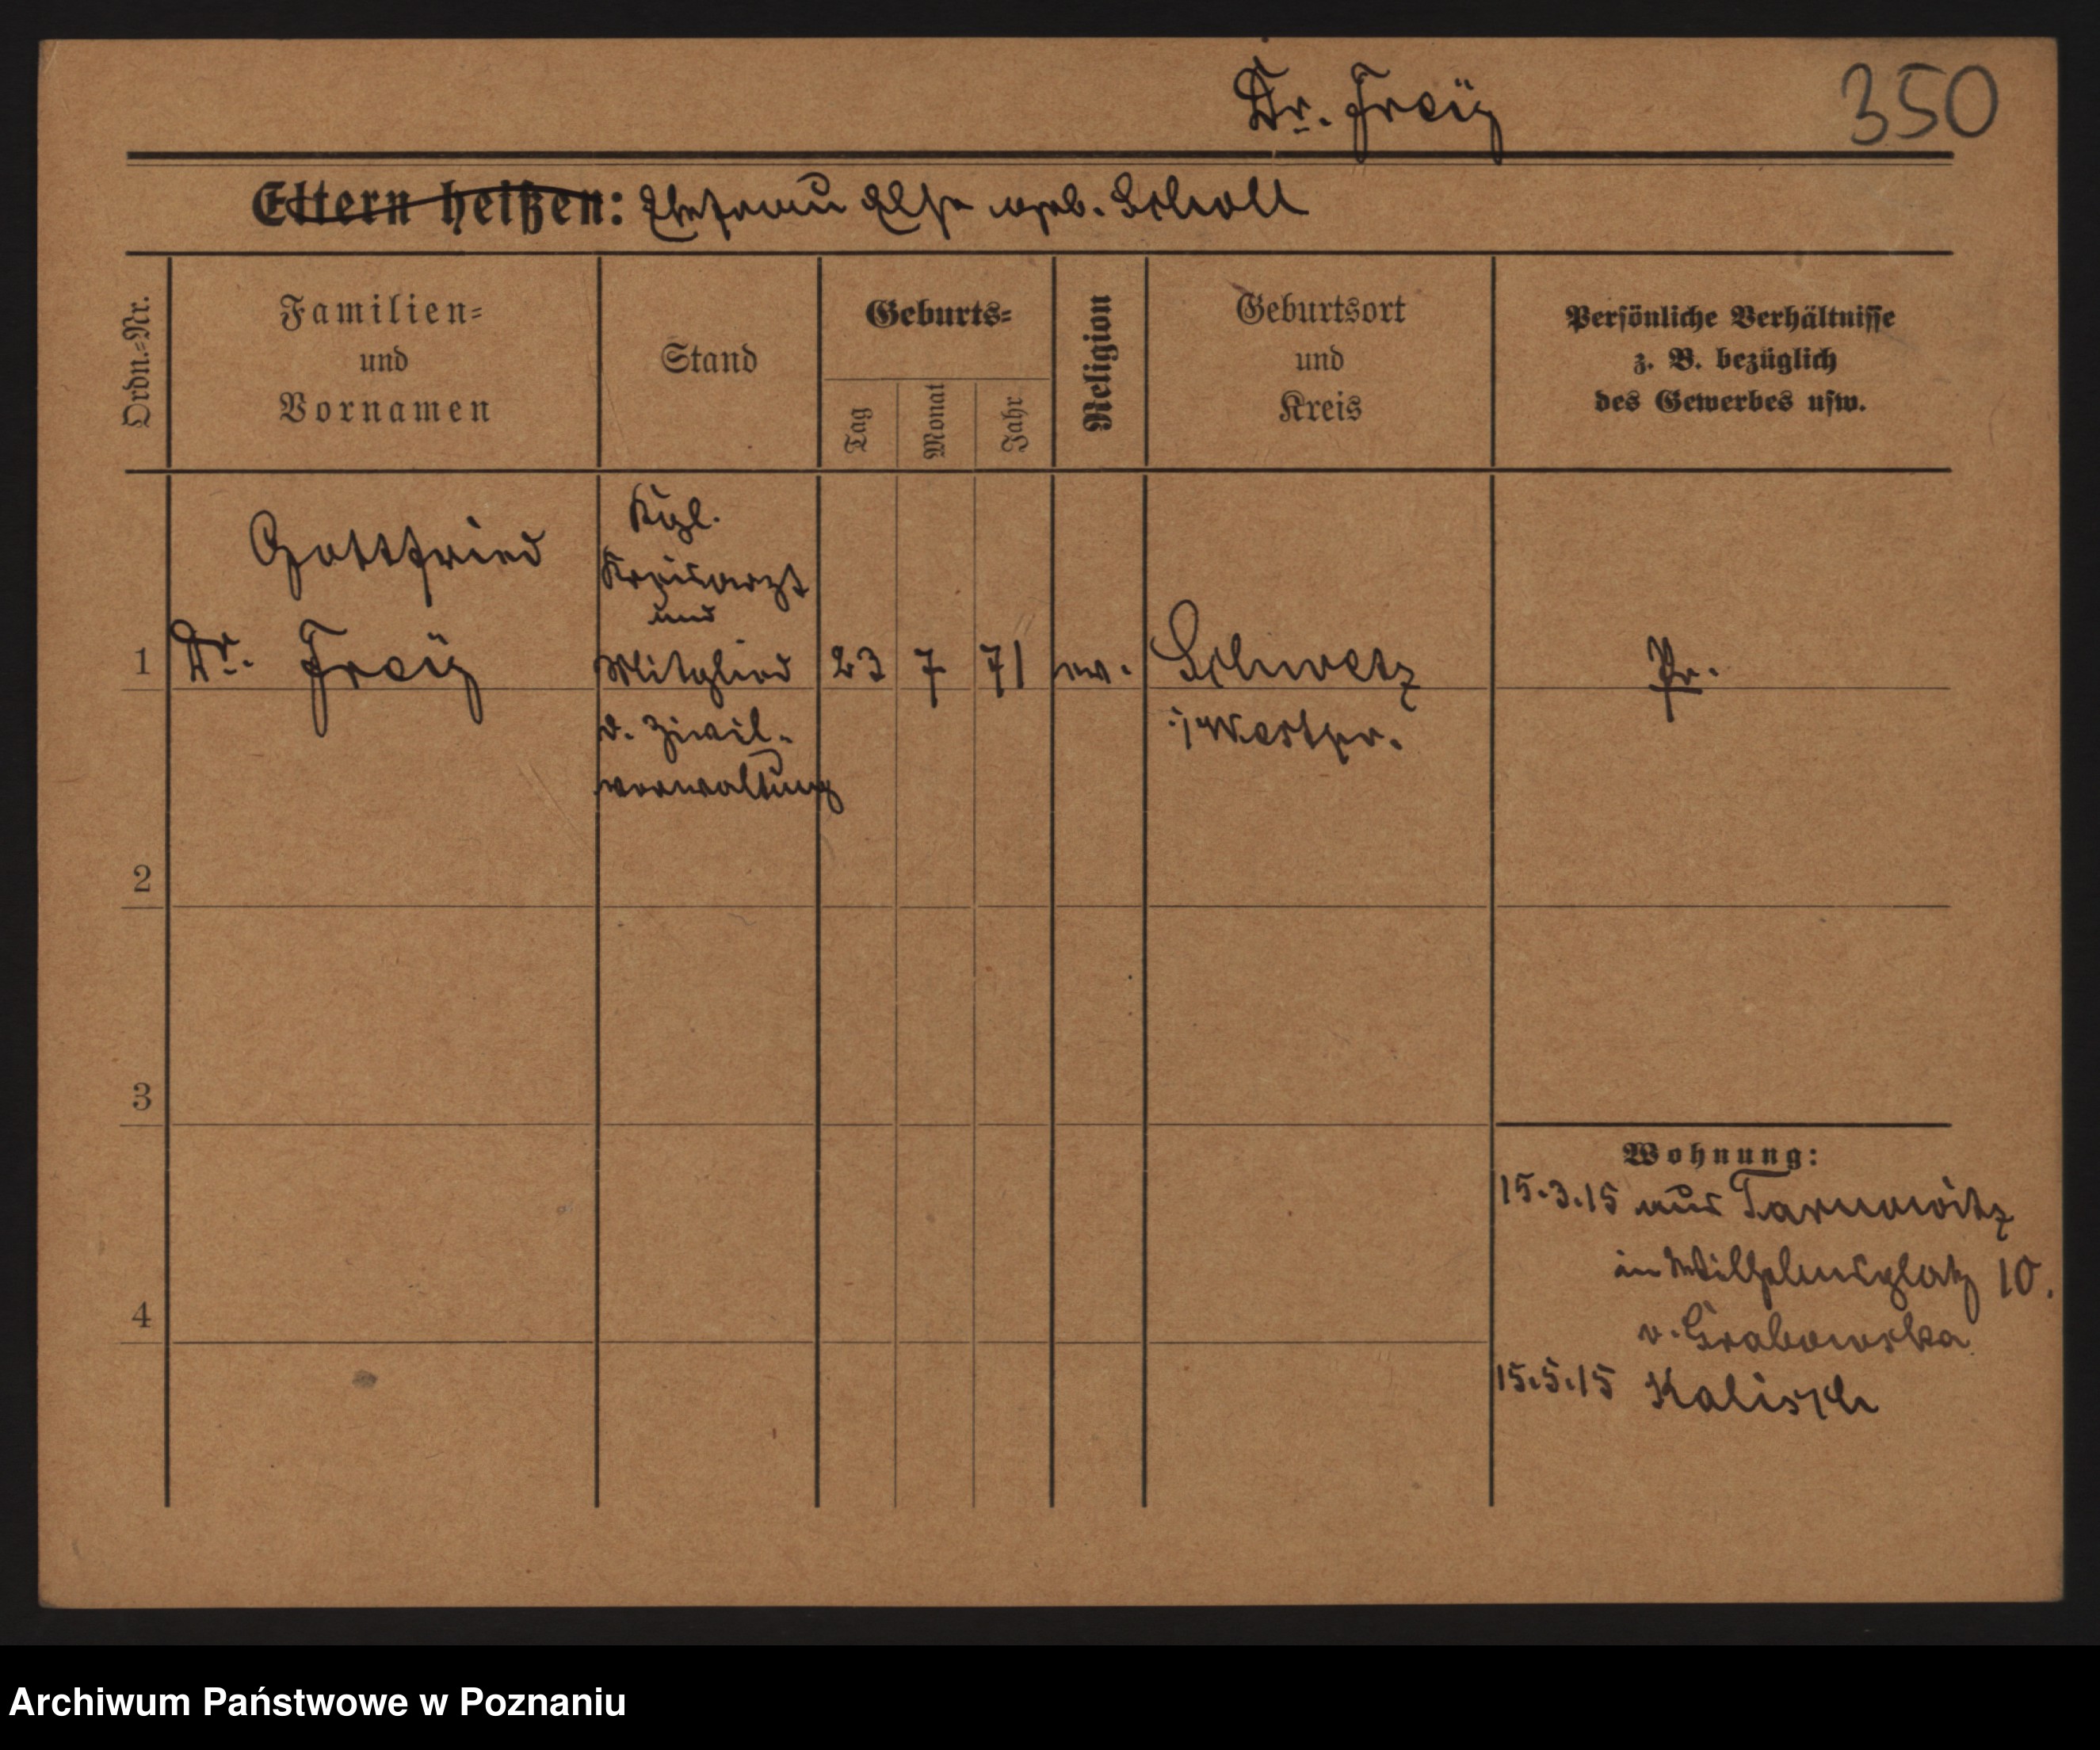 Dr. Freÿ
350
Eltern heißen: Ehefrau Else geb. Scholl
Ordn.=Nr.
Familien=
und
Vornamen
Stand
Geburts=
Tag
Monat
Jahr
Religion
Geburtsort
und
Kreis
Persönliche Verhältnisse
z. B. bezüglich
des Gewerbes usw.
Gottfried
1 Dr. Freÿ
Kgl.
Kreisarzt
und
Mitglied
d. Zivil-
verwaltung
23 7 71 ev.
Schwetz
i/Westpr.
Pr.
2
3
4
Wohnung:
15.3.15 aus Tarnowitz
in Wilhelmsplatz 10.
v. Grabowska
15.5.15 Kalisch
Archiwum Państwowe w Poznaniu